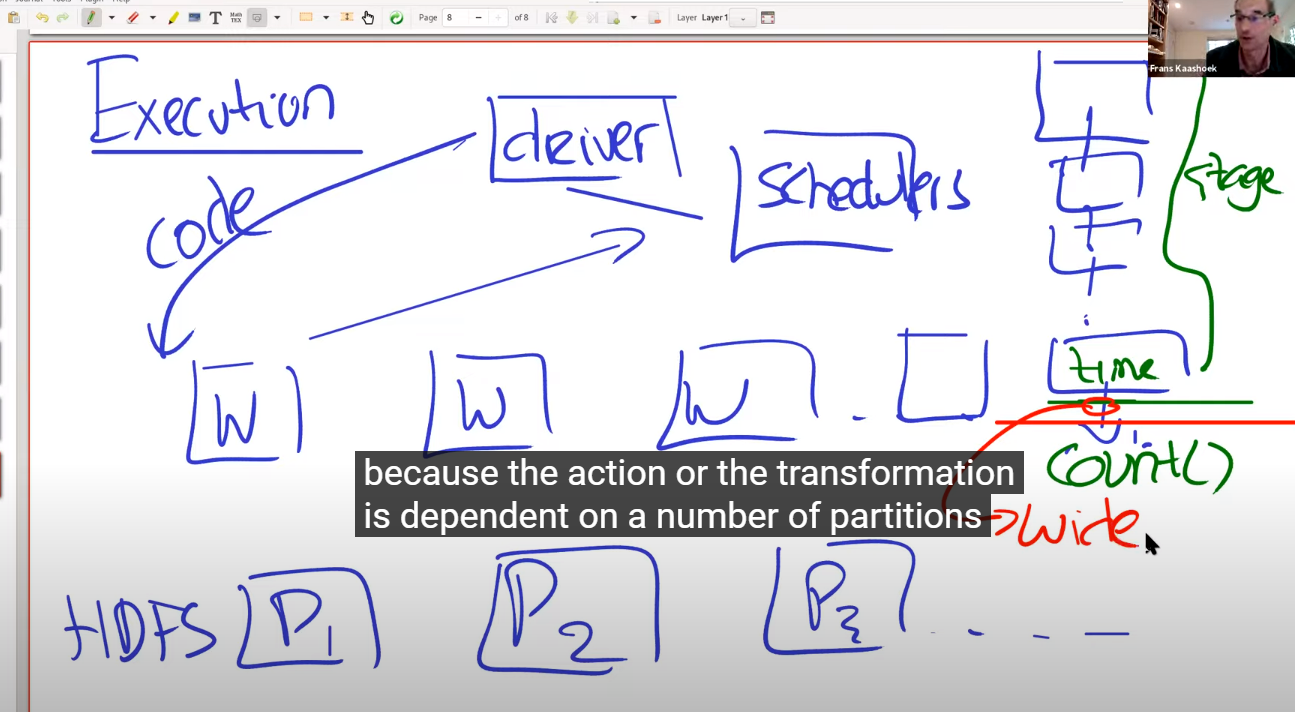 Page 8 of 8 Layer Layer 1
Frans Kaashoek
Execution
driver
schedulers
stage
code
time
W W W
count()
because the action or the transformation
is dependent on a number of partitions
wide
HDFS P1 P2 P3